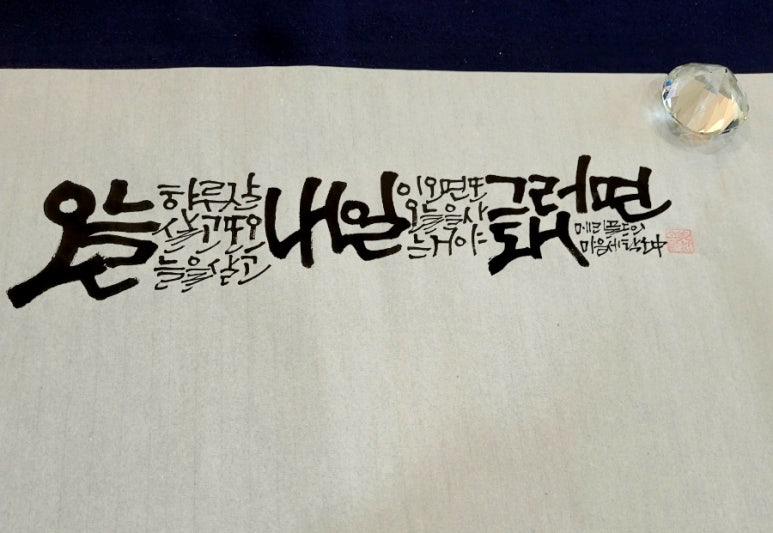 오늘
하루 잘
살고 또 오
늘을 살고
내일
이 오면 또
오늘을 사
는 거야
그러면
돼
메리골드의
마음세탁소中